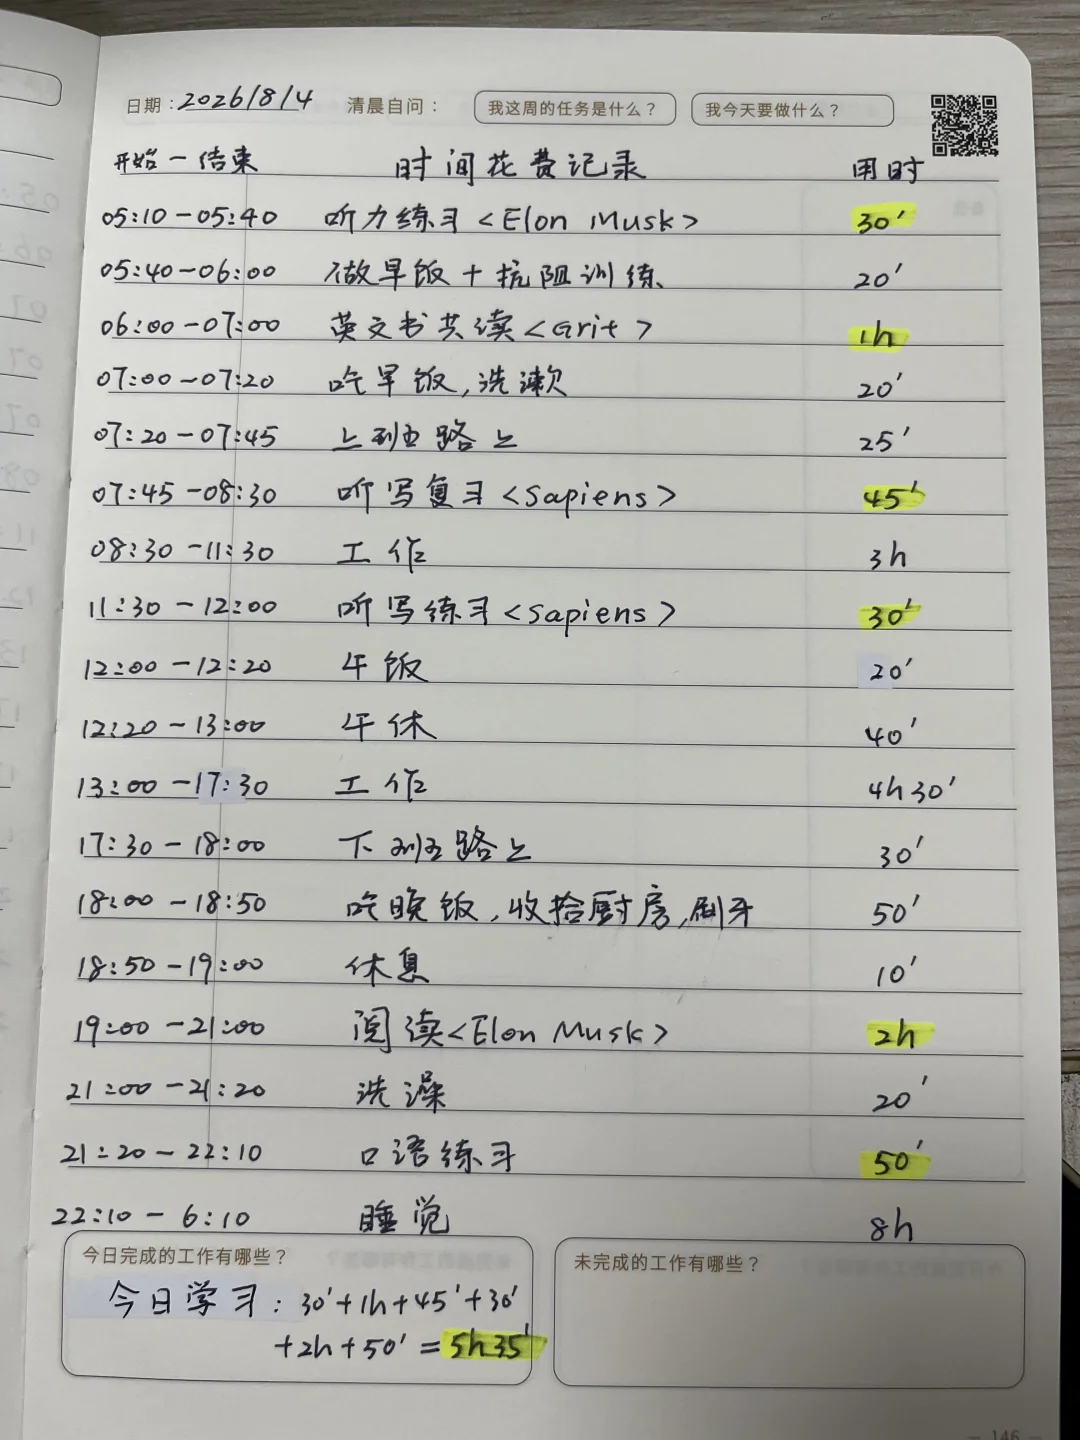 日期：2026/8/4 清晨自问： 我这周的任务是什么？ 我今天要做什么？
开始－结束 时间花费记录 用时
05:10－05:40 听力练习<Elon Musk> 30'
05:40－06:00 做早饭＋抗阻训练 20'
06:00－07:00 英文书共读<Grit> 1h
07:00－07:20 吃早饭,洗漱 20'
07:20－07:45 上班路上 25'
07:45－08:30 听写复习<Sapiens> 45'
08:30－11:30 工作 3h
11:30－12:00 听写练习<Sapiens> 30'
12:00－12:20 午饭 20'
12:20－13:00 午休 40'
13:00－17:30 工作 4h30'
17:30－18:00 下班路上 30'
18:00－18:50 吃晚饭,收拾厨房,刷牙 50'
18:50－19:00 休息 10'
19:00－21:00 阅读<Elon Musk> 2h
21:00－21:20 洗澡 20'
21:20－22:10 口语练习 50'
22:10－6:10 睡觉 8h
今日完成的工作有哪些？ 未完成的工作有哪些？
今日学习：30'+1h+45'+30'
+2h+50'=5h35'
146